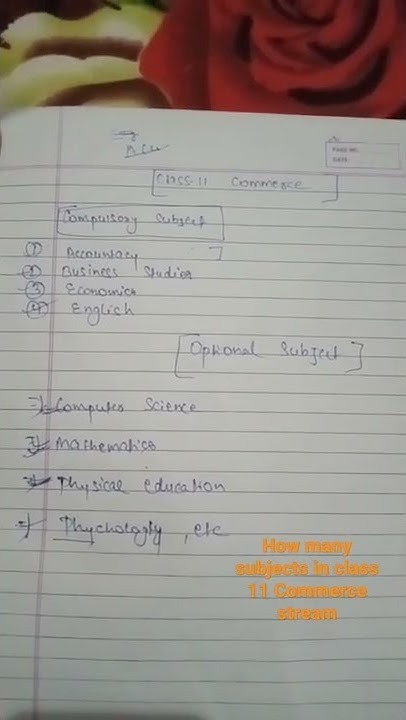 PAGE NO.
DATE
Class-11 Commerce
Compulsory Subject
① Accountacy
② Business Studies
③ Economics
④ English
Optional Subject
=) Computer Science
=) Mathematics
=) Physical education
=) Phychologty, etc
How many
subjects in class
11 Commerce
stream